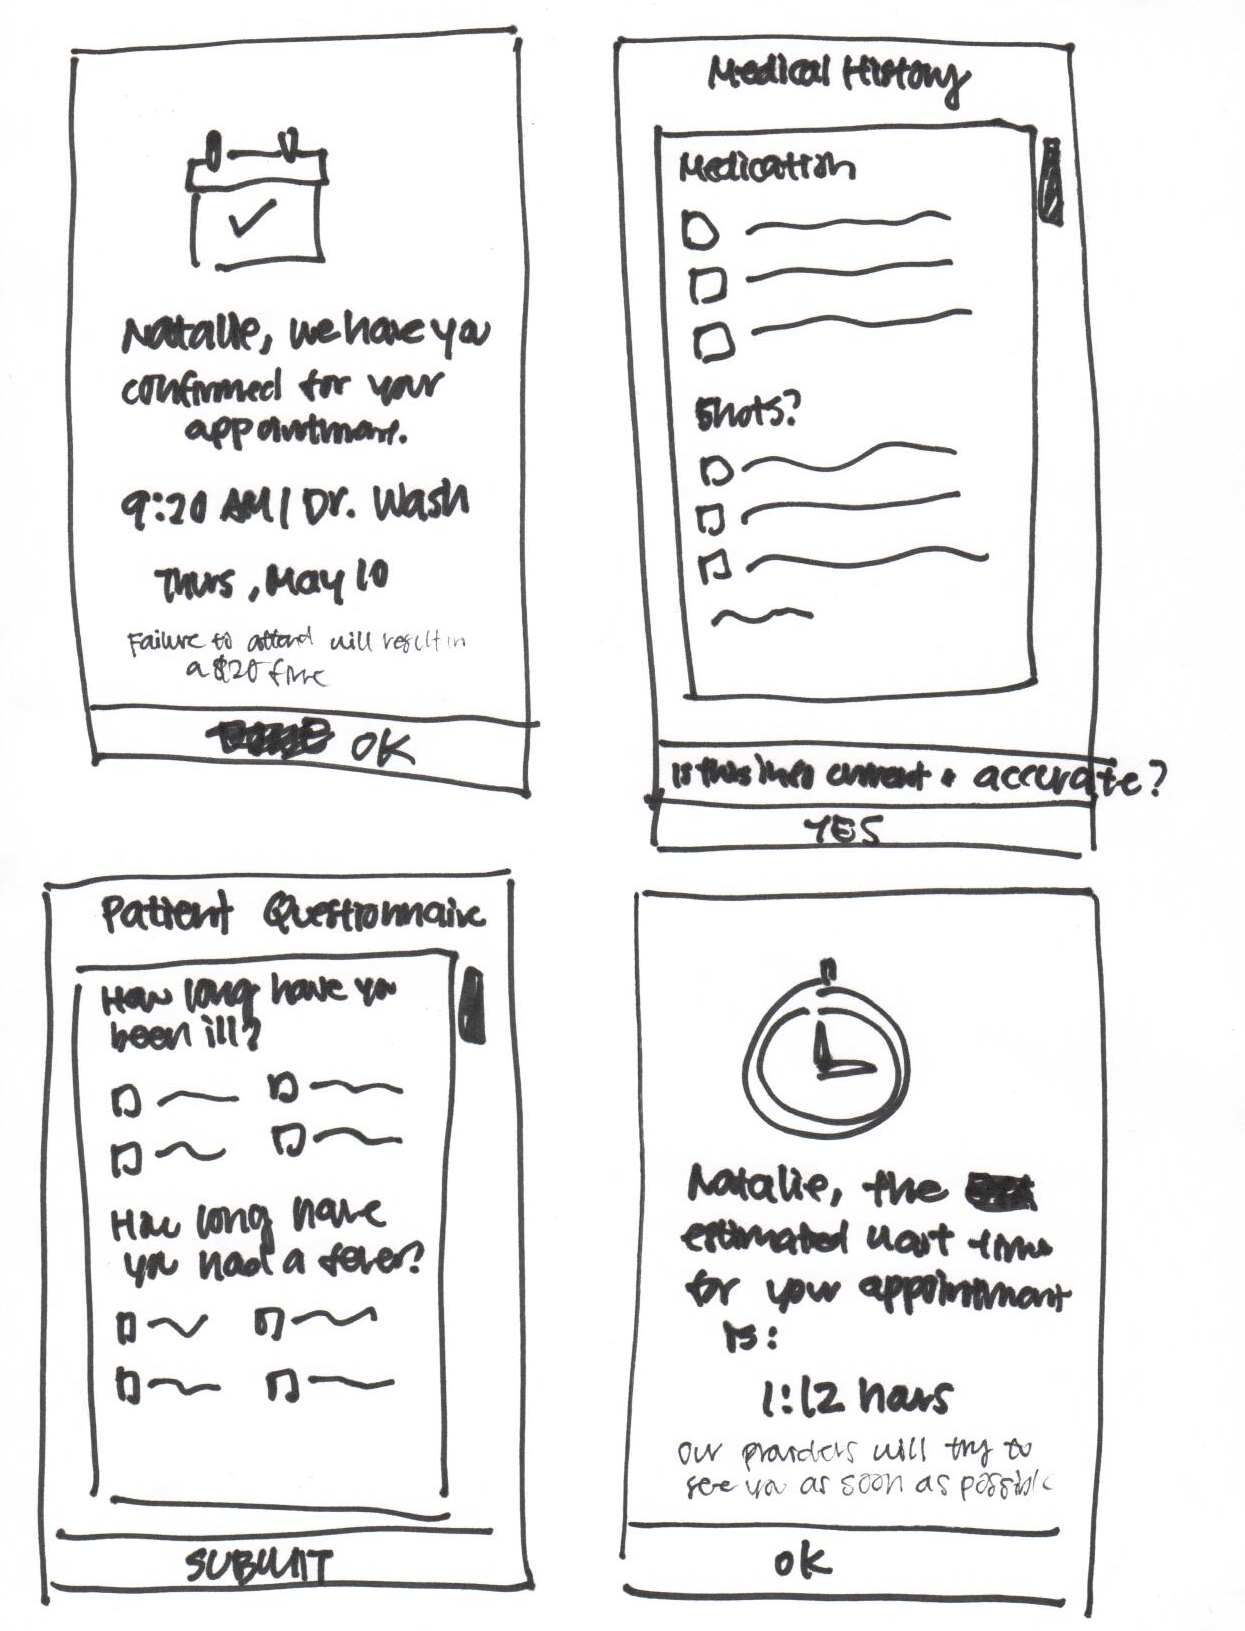 Natalie, we have you
confirmed for your
appointment.
9:20 AM / Dr. Wash
Thurs, May 10
Failure to attend will result in
a $20 fine
OK
Medical History
Medication
Shots?
Is this info current + accurate?
YES
Patient Questionnaire
How long have you
been ill?
How long have
you had a fever?
SUBMIT
Natalie, the
estimated wait time
for your appointment
is:
1:12 hours
Our providers will try to
see you as soon as possible
OK